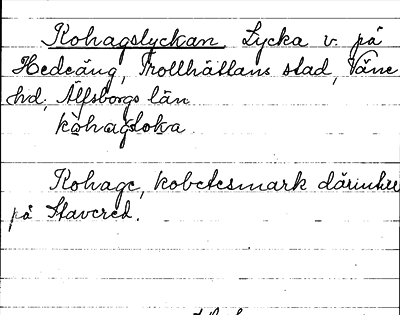 Kohagslyckan. Lycka v. på
Hedeäng, Trollhättans stad, Väne
hd, Älfsborgs län
kohagsloka

Kohage, kobetesmark därintill
på Stavered.